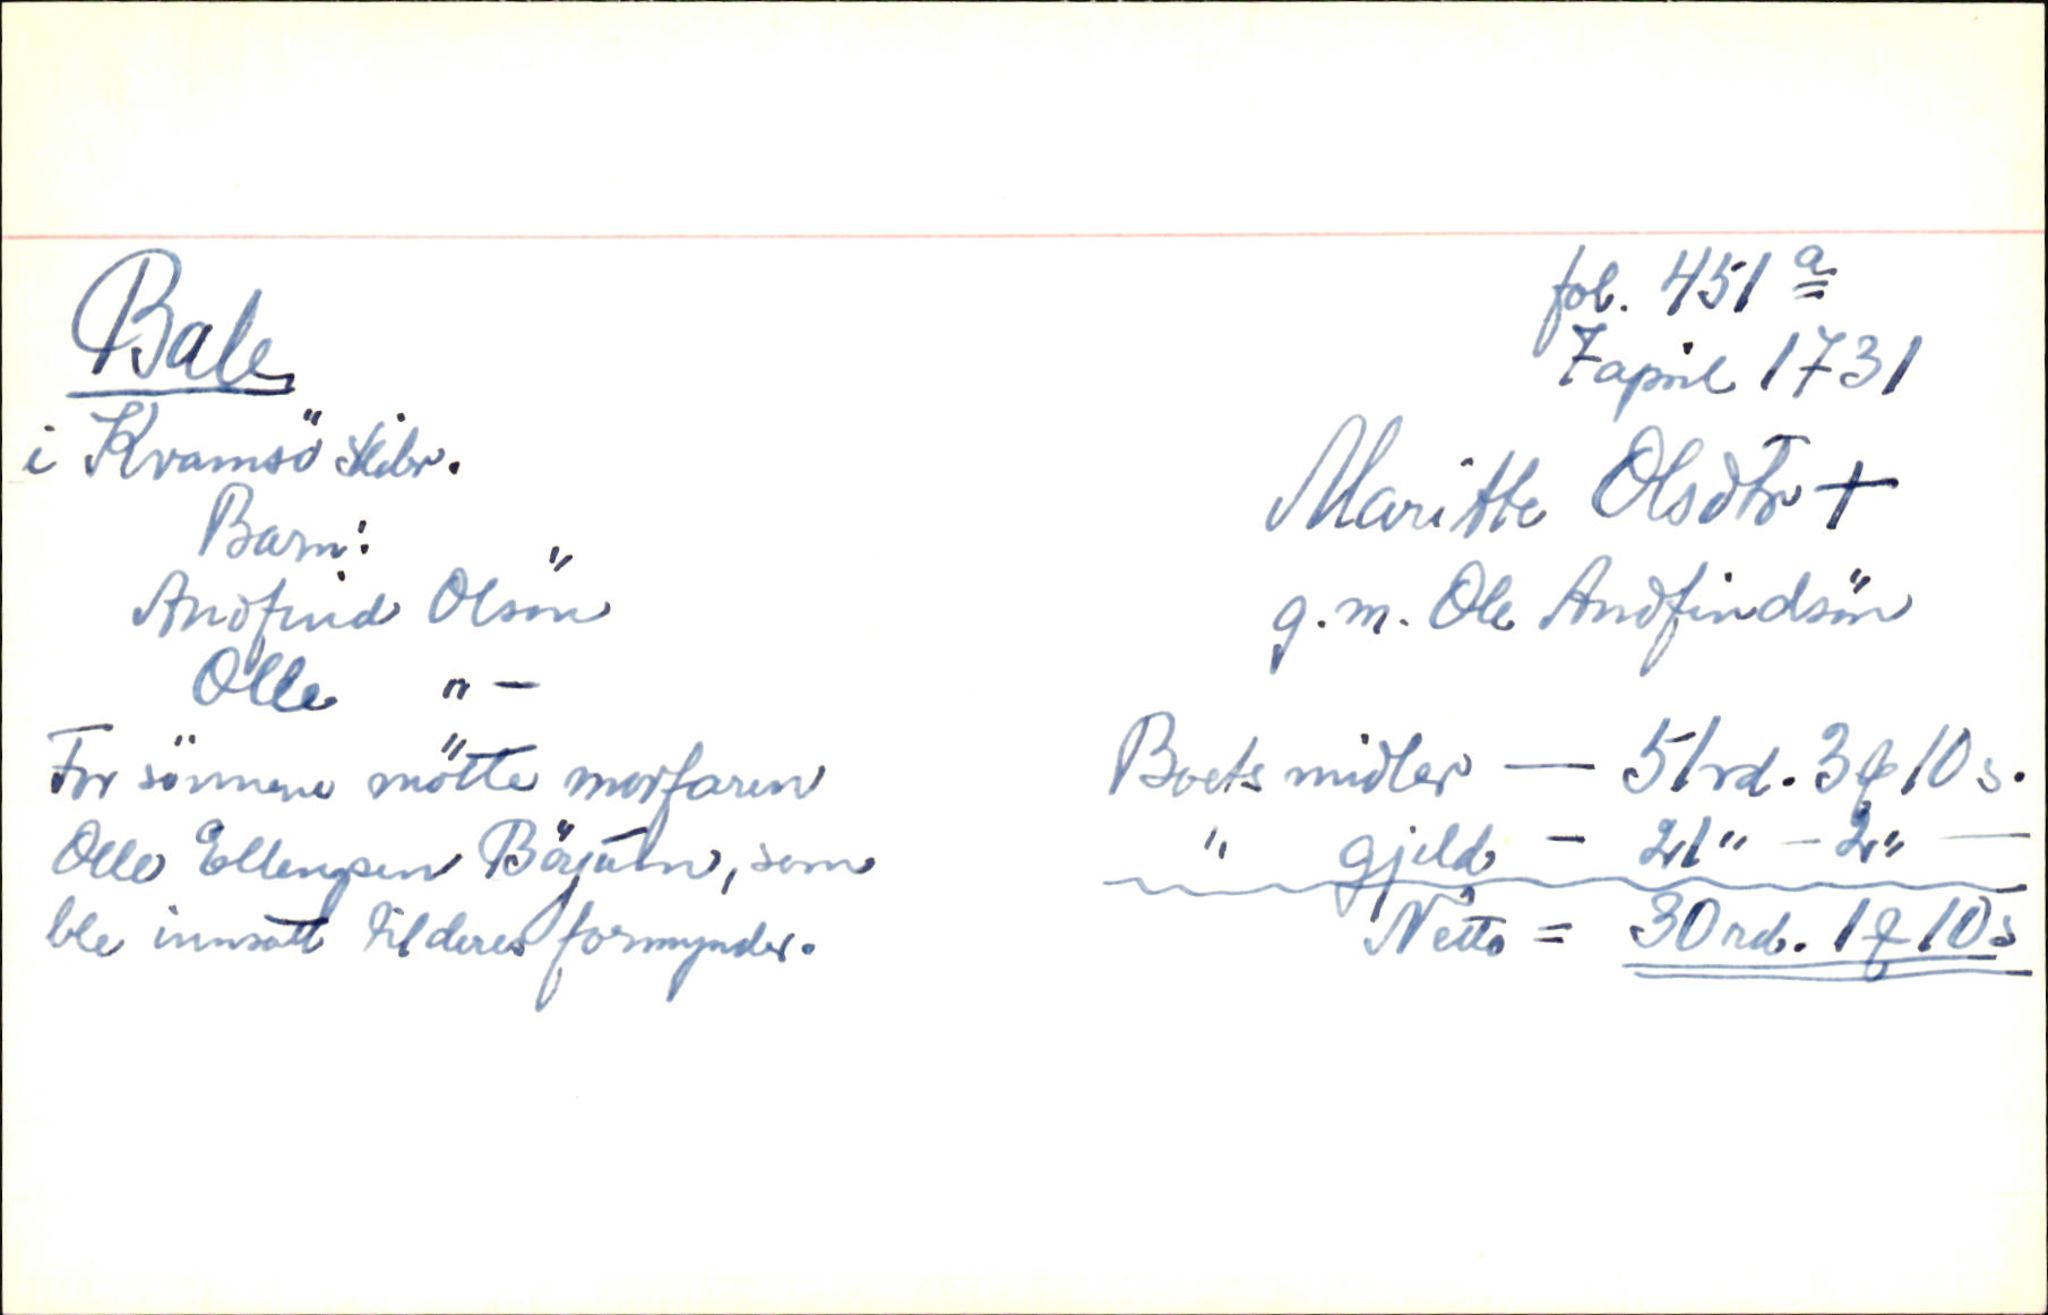 Bale
i Kvamsö skibr.
Barn:
Andfind Olsön
Olle "—
For sönnene mötte morfaren
Olle Ellengsen Börjum, som
ble innsatt til deres formynder.
fol. 451 a
7 april 1731
Maritte Olsdtr +
g. m. Ole Andfindsön
Boets midler — 51 rd. 3 q 10 s.
" gjeld — 21 " — 2 " —
Netto = 30 rd. 1 q 10 s